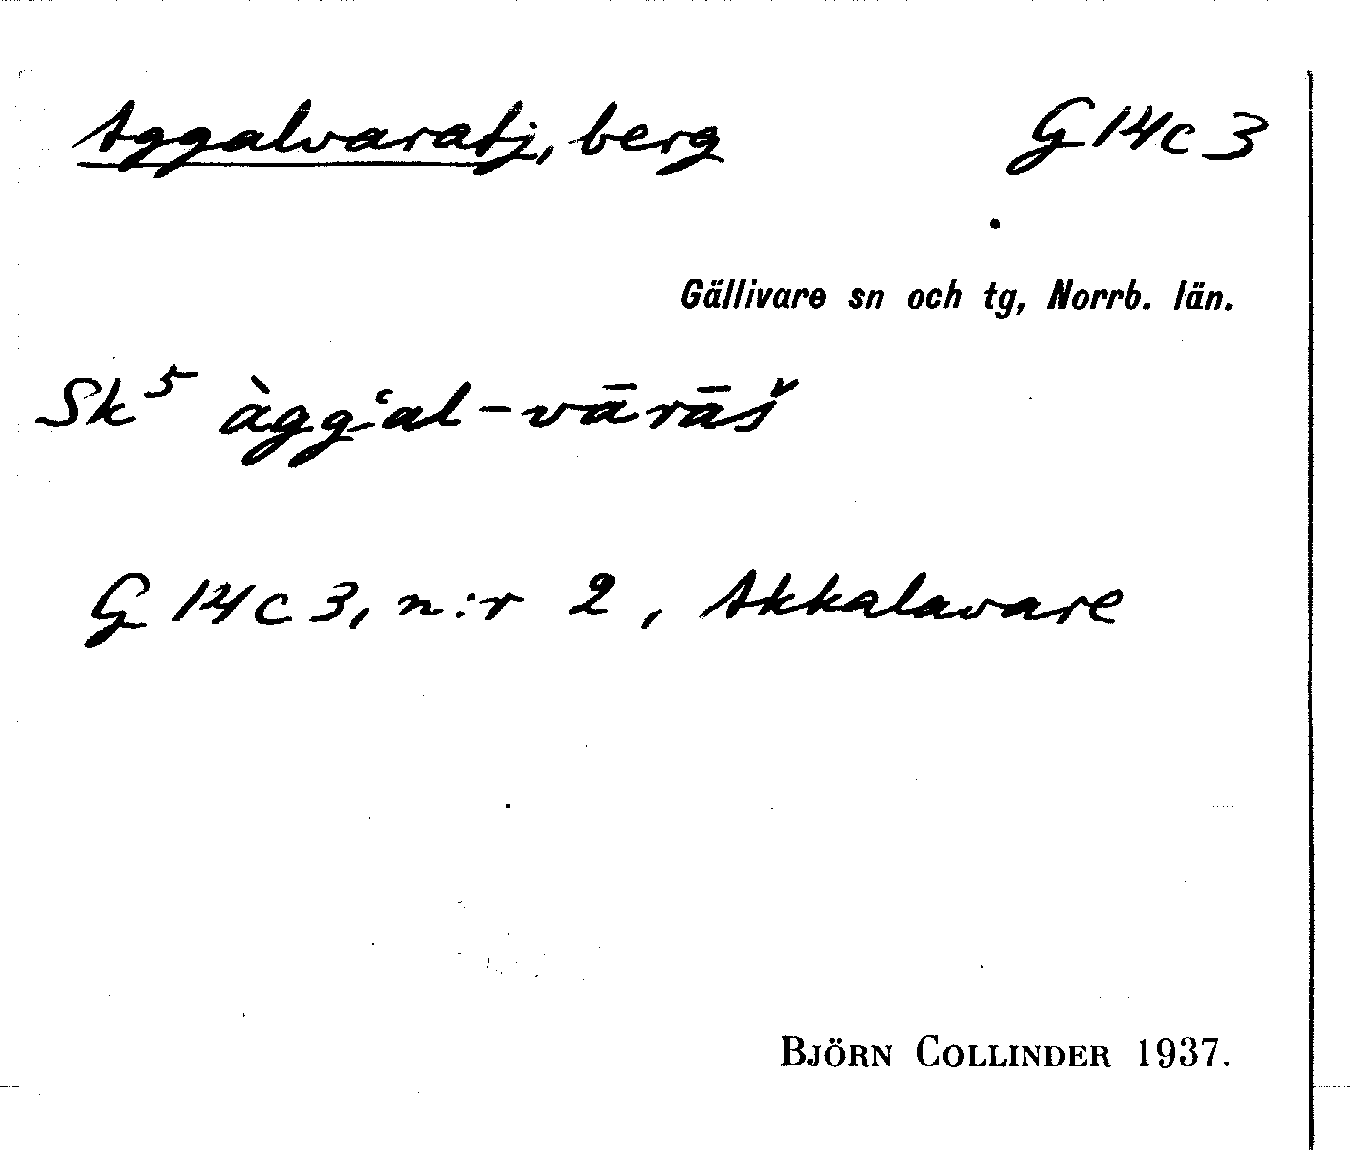 Aggalvaratj, berg G14c3
Gällivare sn och tg, Norrb. län.
Sk⁵ àgg‘al-vārāš
G14c3, n:r 2, Akkalavare
BJÖRN COLLINDER 1937.